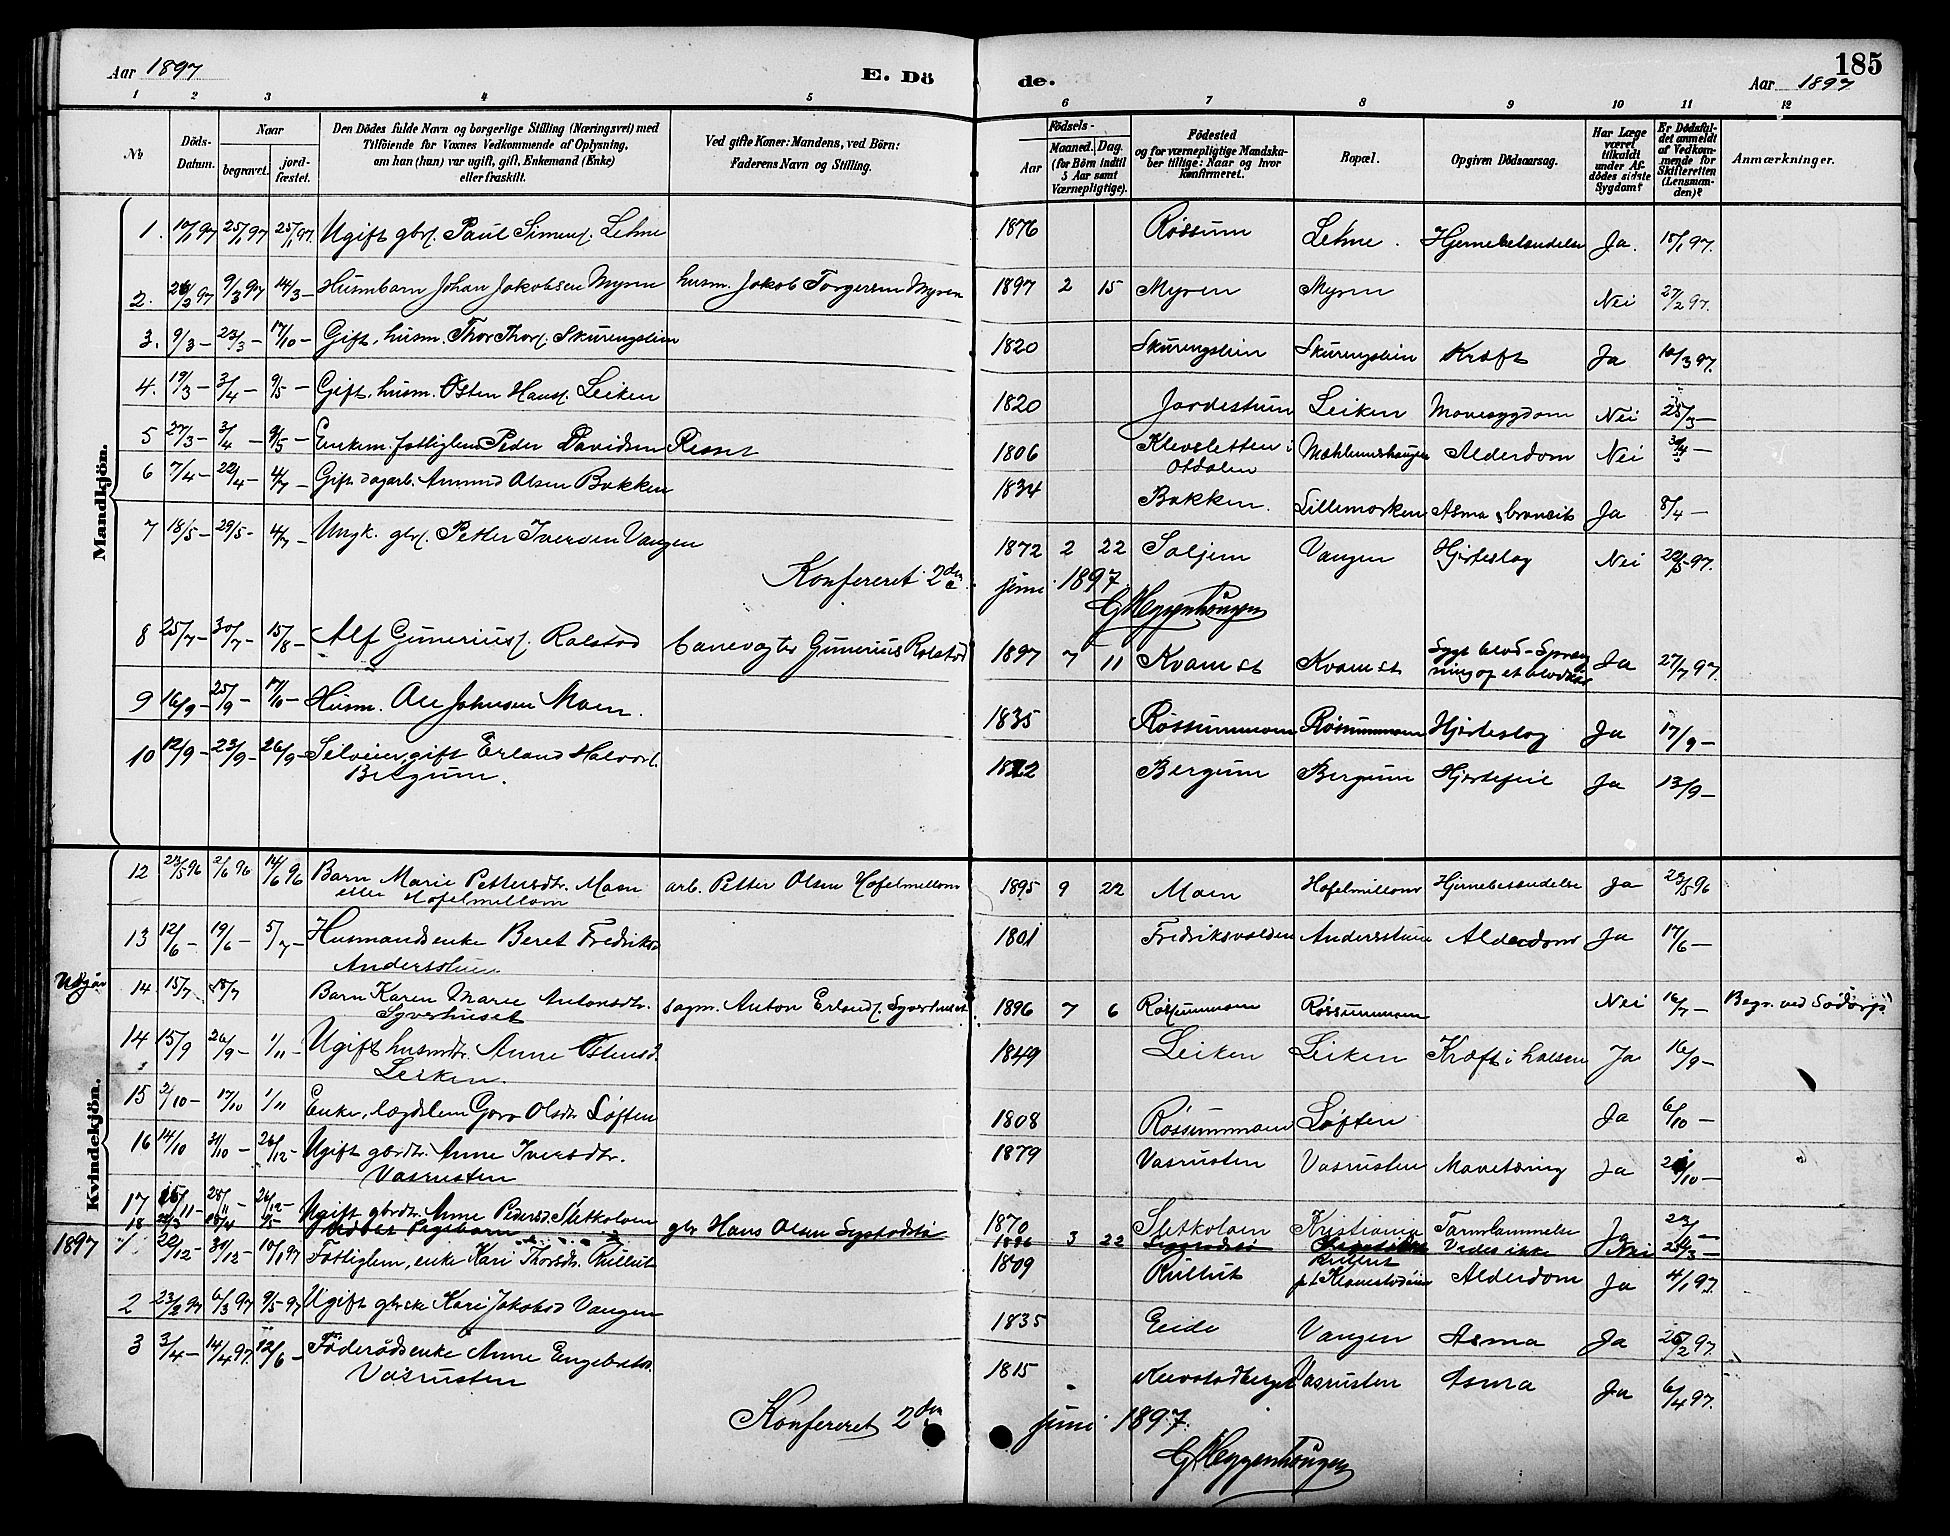 Aar 1897
E. Dö
de.
185
Aar 1897
1 2 3 4 5 6 7 8 9 10 11 12
No
Döds-Datum.
Naar
begravet.
jord-fæstet.
Den Dödes fulde Navn og borgerlige Stilling (Næringsvei) med
Tilföiende for Voxnes Vedkommende af Oplysning,
om han (hun) var ugift, gift, Enkemand (Enke)
eller fraskilt.
Ved gifte Koner: Mandens, ved Börn:
Faderens Navn og Stilling.
Födsels-
Aar
Maaned. Dag.
(for Börn indtil
5 Aar samt
Værnepligtige).
Födested
og for værnepligtige Mandska-
ber tillige: Naar og hvor
Konfirmeret.
Bopæl.
Opgiven Dödsaarsag.
Har Læge
været
tilkaldt
under Af-
dödes sidste
Sygdom?
Er Dödsfal-
det anmeldt
af Vedkom-
mende for
Skifteretten
(Lensman-
den)?
Anmærkninger.
Mandkjön.
1. 10/1 97 25/1 97 25/1 97. Ugift gbrs. Paul Simens. Lehne 1876 Røssum Lehne. Hjernebetændelse Ja. 15/1 97.
2. 26/2 97 9/3 97 14/3 – Husmbarn Johan Jakobsen Myren husm. Jakob Torgersen Myren 1897 2 15 Myren Myren Nei 27/2 97.
3. 9/3 – 23/3 – 17/10 – Gift, husm. Thor Thors. Skurengslien 1820 Skurengslien Skurengslien Kræft Ja 10/3 97.
4. 19/3 – 3/4 – 9/5 – Gift. husm. Østen Hans. Leiken 1820 Jordestuen Leiken Mavesygdom Nei 25/3 –
5 27/3 – 3/4 – 9/5 – Enkem. fattiglem Peder Davidsen Risset 1806 Klevsletten i
Otdalen Alderdom Nei
6 7/4 – 22/4 – 4/7 – Gift dagarb. Amund Olsen Bakken 1834 Bakken. Lillemorken Asma Ja 8/4 –
7 18/5 – 29/5 – 4/7 – Ungk. gbrs. Petter Iversen Vangen 1872 2 22 Soljem Vangen Hjerteslag Nei 97.
Konfereret 2den juni 1897
G Heggenhougen
8 25/7 – 30/7 – 15/8 – Alf Guneriuss. Rolstad banevogter Gunerius Rolstad 1897 7 11 Kvam st Kvam st Sygt blod – Spræng
ning af et blodkar Ja 27/7 97.
9 16/9 – 25/9 – 17/10 – Husm. Ole Johnsen Moen. 1835 Røssummoen Røssummoen Hjerteslag Ja 17/9 –
10 12/9 – 23/9 – 26/9 – Selveier, gift Erland Halvors.
Bergum. 1822 Bergum Bergum Hjertefeil Ja 13/9 –
Kvindekjön.
12 23/5 96 2/6 96 14/6 96 Barn Marie Pettersdtr. Moen
eller Hofelmillom arb. Petter Olsen Hofelmillom 1895 9 22 Moen Hofelmillom Hjernebetændelse Ja 23/5 96
13 12/6 – 19/6 – 5/7 – Husmandsenke Beret Fredriksd
Andersstuen 1801 Fredriksvolden Andersstuen Alderdom Ja 17/6 –
Udgår 14 15/7 18/7 Barn Karen Marie Antonsdtr.
Syverhuset sagm. Anton Erlands. Syverhuset 1896 7 6 Røssummoen Røssummoen Nei 16/7 – Begr. ved Sødorp
14 15/9 26/9 – 1/11 – Ugift husmdtr. Anne Østensd.
Leiken. 1849 Leiken Leiken Kræft i halsen Ja 16/9 –
15 2/10 – 17/10 1/11 Enke, lægdslem Goro Olsdtr Løften 1808 Røssummoen Løften Ja 6/10 –
16 14/10 31/10 – 26/12 – Ugift gbrdtr. Anne Iversdtr.
Vasrusten 1879 Vasrusten Vasrusten Mavetæring Ja
17 15/11 – 25/11 – 26/12 – Ugift gbrdtr. Anne Pedersd. Sletkoloen 1870 Sletkoloen Kristiania Tarmlammelse Ja
18 Pigebarn gbr Hans Olsen 1896 3 22 Vides ikke Nei
1897 1 22/12 – 31/12 – 10/1 97 Fattiglem, enke Kari Thorsdtr. Rullut 1809 Rullut Rullut Alderdom Ja 4/1 97.
2 23/2 97 6/3 97 9/5 97 Ugift Kari Jakobsd Vangen 1835 Eide Vangen Asma Ja 26/2 97.
3 3/4 – 14/4 97. 12/6 – Føderådsenke Anne Engebretsd.
Vasrusten 1815 Vasrusten Asma Ja 6/4 97.
Konfereret 2den juni 1897.
G Heggenhougen